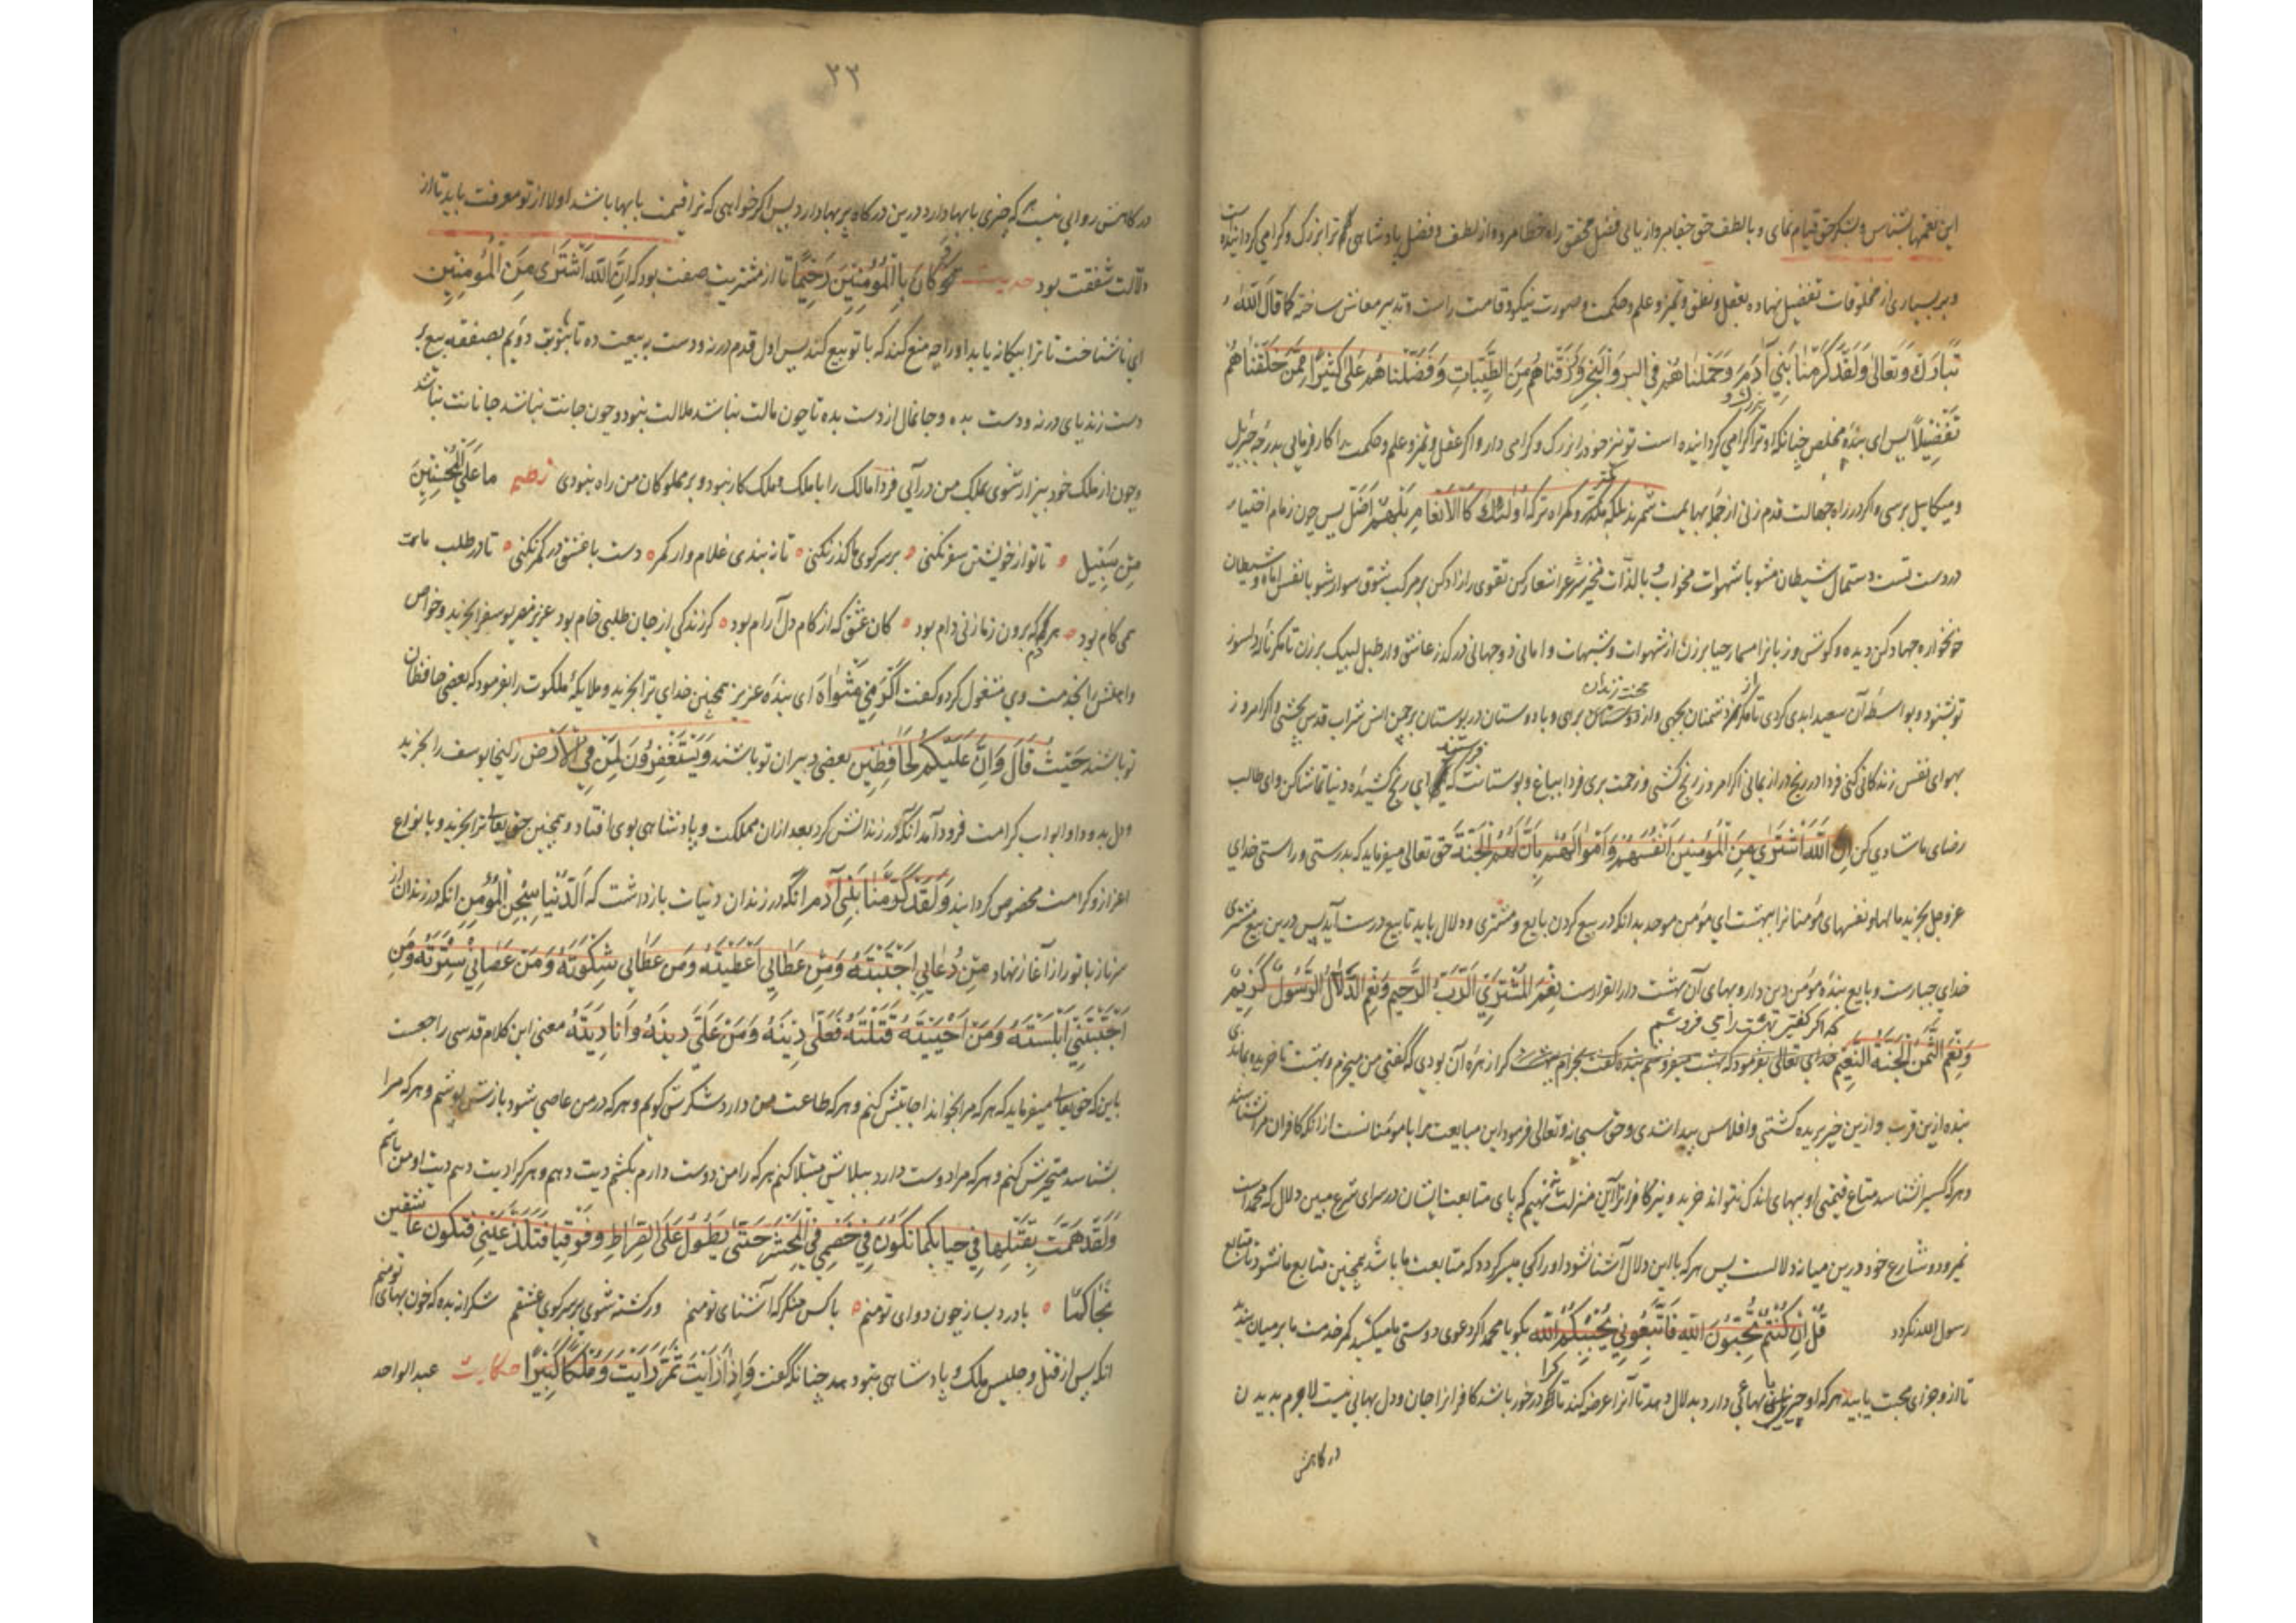 این نعمتها بشناس و بشکر حق قیام نمای و با لطف حق جفا مبر و از یابی فضل محقق راه خطا مرو و از لطف و فضل پادشاهی ترا بزرگ و گرامی گردانیده است
و بر بسیاری از مخلوقات تفضیل نهاده بعقل و نطق و تمیز و علم و حکمت و صورت نیکو و قامت راست و تدبیر معاش ساخته کما قال الله
تَبَارَكَ وَتَعَالٰی وَلَقَدْ كَرَّمْنَا بَنِي آدَمَ وَحَمَلْنَاهُمْ فِي الْبَرِّ وَالْبَحْرِ وَرَزَقْنَاهُمْ مِنَ الطَّيِّبَاتِ وَفَضَّلْنَاهُمْ عَلٰی كَثِيرًا مِمَّنْ خَلَقْنَاهُمْ
تَفْضِيلًا پس ای بندهٔ مخلص چنانکه او ترا بزرگ و گرامی گردانیده است تو نیز خود را بزرگ و گرامی دار و اگر عقل و تمیز و علم و حکمت را کار فرمایی بدرجه جبرئیل
و میکائیل برسی و اگر در راه جهالت قدم زنی از جمله بهایمت شمرند بلکه کمتر و گمراه تر که أُولٰئِكَ كَالْأَنْعَامِ بَلْ هُمْ أَضَلُّ پس چون زمام اختیار
در دست تست دستمال شیطان مشو با شهوات مخواب و بالذات مخیز شرع را شعار کن تقوی را زاد کن بر مرکب شوق سوار شو با نفس اماره و شیطان
خونخواره جهاد کن دیده و گوش و زبانرا مسمار حیا برزن از شهوات و شبهات و امانی دو جهانی در گذر عاشق وار طبل لبیک برزن تا مگر نالهٔ دلسوز
تو شنود و بواسطهٔ آن سعید ابدی گردی تا مگر از محنت زندان دشمنان بجهی و از دوستانش برهی و با دوستان در بوستان برچمن انس شراب قدس بچشی و اگر امروز
بهوای نفس زندگانی کنی فردا در رنج دراز بمانی اگر امروز رنج کشی و زحمت بری فردا بباغ و بوستانت فرستند که ای رنج کشیده دنیا تماشا کن و ای طالب
رضای ما شادی کن إِنَّ اللّٰهَ اشْتَرٰی مِنَ الْمُؤْمِنِينَ أَنْفُسَهُمْ وَأَمْوَالَهُمْ بِأَنَّ لَهُمُ الْجَنَّةَ حق تعالی میفرماید که بدرستی و راستی خدای
عز و جل بخرید مالها و نفسهای مؤمنانرا ببهشت ای مؤمن موحد بدانکه در بیع کردن بایع و مشتری و دلال باید تا بیع درست آید پس درین بیع مشتری
خدای جبارست و بایع بندهٔ مؤمن دین دار و بهای آن بهشت دار القرارست نِعْمَ الْمُشْتَرِي الرَّبُّ الرَّحِيمُ وَنِعْمَ الدَّلَّالُ الرَّسُولُ كَرِيمٌ
وَنِعْمَ الثَّمَنُ الْجَنَّةُ النَّعِيمُ خدای تعالی بفرمود که بهشت میفروشم بنده گفت بخرم که اگر گفتی بهشت را می فروشم گرا زهره آن بودی که گفتی من میخرم و بهشت ناخریده بماندی
بنده ازین قرب و ازین خیر بریده گشتی و افلاس پیدا شدی و حق سبحانه و تعالی فرمود این مبایعت مرا با مؤمنانست از آنکه کافران مرا نشناسند
و هر که کسیرا نشناسد متاع قیمتی او ببهای اندک نتواند خرید و نیز کافرانرا این منزلت ننهیم که پای متابعت ایشان در سرای شرع مبین دلال که محمد است
نمیرود و شارع خود درین میانه دلالست پس هر که با این دلال آشنا نشود او را کی میسر گردد که متابعت ما باشد همچنین متابع ما نشود تا متابع
رسول الله نگردد قُلْ إِنْ كُنْتُمْ تُحِبُّونَ اللّٰهَ فَاتَّبِعُونِي يُحْبِبْكُمُ اللّٰهُ بگو یا محمد اگر دعوی دوستی ما میکنید کمر خدمت ما بر میان بندید
تا از و جزای محبت یابید هر که او چیزی با بهایی دارد بدلال دهد تا آنرا عرضه کند تا کرا در خور باشد کافرانرا جان و دل بهایی نیست لاجرم بدیدن
درگاهش
۳۳
درگاهش روایی نیست هر که چیزی بابها دارد درین درگاه پر بها دارد پس اگر خواهی که ترا قیمت بابها باشد اولا از تو معرفت باید تا از
دلالت شفقت بود حدیث وَكَانَ بِالْمُؤْمِنِينَ رَحِيمًا تا از مشتریت صفت بود که إِنَّ اللّٰهَ اشْتَرٰی مِنَ الْمُؤْمِنِينَ
ای ناشناخت تا ترا بیگانه یابد او را چه منع کند که با تو بیع کند پس اول قدم در نه و دست ببیعت ده تا بنوبت دویم بصفقه بیع
دست زند پای در نه و دست بده و جان مال از دست بده تا چون مالت نباشد ملالت نبود و چون جانت نباشد جانانت نباشد
و چون از ملک خود بیزار شوی بملک من درآیی فردا مالک را با ملک و ملک کار نبود و بر مملوکان من راه نبودی نظم مَا عَلَى الْمُحْسِنِينَ
مِنْ سَبِيلٍ تا تو از خویشتن سفر نکنی بر سر کوی ما گذر نکنی تا نه بندی غلام وار کمر دست با عشق در کمر نکنی تا در طلب مات
همی کام بود هر دم که برون ز ما زنی دام بود کان عشق که از کام دل آرام بود گر زندگی از جان طلبی خام بود عزیز مصر یوسف را بخرید و خواص
و اهلش را بخدمت وی مشغول کرد و گفت أَكْرِمِي مَثْوَاهُ ای بنده عزیز همچنین خدای ترا بخرید و ملایکهٔ ملکوت را بفرمود که بعضی حافظان
تو باشند حَيْثُ قَالَ وَإِنَّ عَلَيْكُمْ لَحَافِظِينَ بعضی دبیران تو باشند وَيَسْتَغْفِرُونَ لِمَنْ فِي الْأَرْضِ زلیخا یوسف را بخرید
و دل بدو داد و ابواب کرامت فرود آمد آنگه در زندانش کرد بعد از آن مملکت و پادشاهی بوی افتاد و همچنین حق تعالی ترا بخرید و بانواع
اعزاز و کرامت مخصوص گردانید وَلَقَدْ كَرَّمْنَا بَنِي آدَمَ آنگه در زندان دنیات بازداشت که الدُّنْيَا سِجْنُ الْمُؤْمِنِ آنگه در زندان از
سر ناز با تو راز آغاز نهاد مَنْ دَعَانِي أَجَبْتُهُ وَمَنْ عَطَانِي أَعْطَيْتُهُ وَمَنْ عَطَانِي شَكَوْتُهُ وَمَنْ عَصَانِي سَتَرْتُهُ وَمَنْ
أَحَبَّنِي أَبْلَسْتُهُ وَمَنْ أَحْبَبْتُهُ قَتَلْتُهُ فَعَلَيَّ دِيَتُهُ وَمَنْ عَلَيَّ دِيَتُهُ وَأَنَا دِيَتُهُ معنی این کلام قدسی راجعست
باین که حق تعالی میفرماید که هر که مرا بخواند اجابتش کنم و هر که طاعت من دارد شکرش گویم و هر که در من عاصی شود بازش پوشم و هر که مرا
بشناسد متحیرش کنم و هر که مرا دوست دارد ببلایش مبتلا کنم هر که را من دوست دارم بکشم دیت دهم و هر کرا دیت دهم دیت او من باشم
وَلَقَدْ هَمَمْتُ بِقَتْلِهَا فِي حُبِّهَا كَيْمَا تَكُونَ فِي خَصْمِي فِي الْمَحْشَرِ حَتّٰی يَطُولَ عَلَى الصِّرَاطِ وَقُوفُنَا فَتَلَذَّ عَيْنِي فَتَكُونَ عَاشِقِينَ
با درد بساز چون دوای تو منم با کس منگر که آشنای تو منم ور کشته شوی بر سر کوی عشقم شکرانه بده که خونبهای تو منم
آنکه پس از قتل و جلیس ملک و پادشاهی نبود همچنانکه گفت وَإِذَا رَأَيْتَ ثَمَّ رَأَيْتَ وَمُلْكًا كَبِيرًا حکایت عبد الواحد